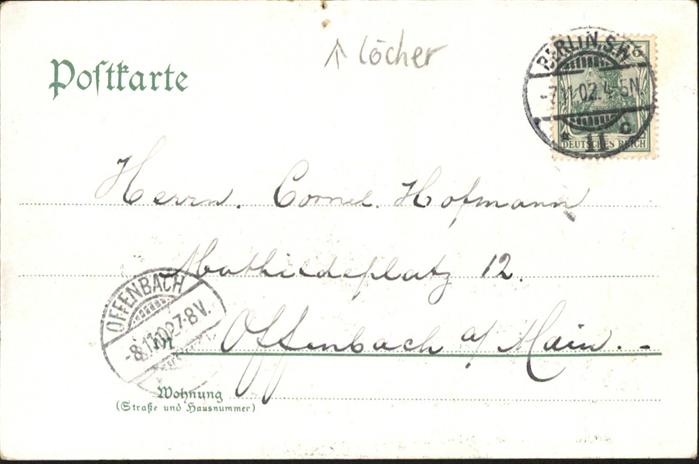 ↑ Löcher
Postkarte
BERLIN S.W.
-7.11.02. 4-5N.
* 11 c
5
DEUTSCHES REICH
Herrn. Cornel. Hofmann
Mathildeplatz 12.
OFFENBACH
-8.11.02. 7-8 V.
in Offenbach a/ Main. -
Wohnung
(Straße und Hausnummer)